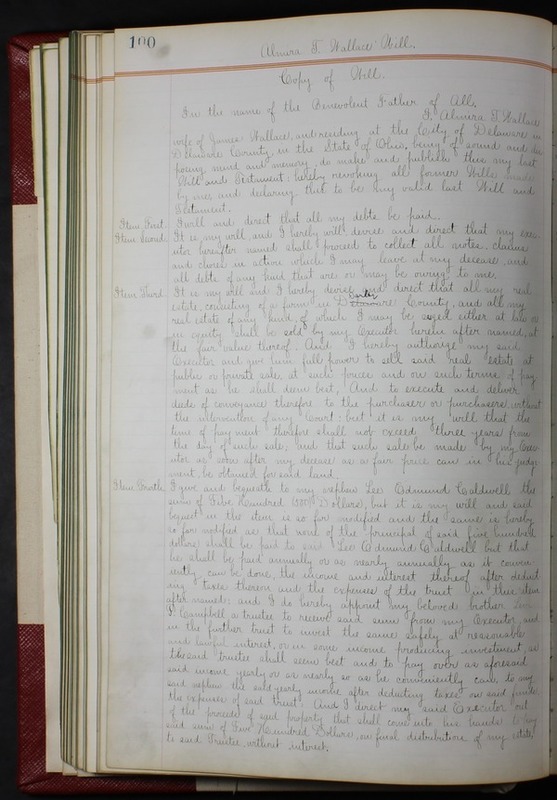 100
Almira T. Wallace Will.
Copy of Will.
In the name of the Benevolent Father of All.
I, Almira T. Wallace
wife of James Wallace, and residing at the City of Delaware in
Delaware County, in the State of Ohio, being of sound and dis
posing mind and memory, do make and publish this my last
Will and Testament: hereby revoking all former Wills made
by me, and declaring this to be my valid last Will and
Testament.
Item First. I will and direct that all my debts be paid.
Item Second. It is my will, and I hereby will, devise and direct that my exec
utor hereafter named shall proceed to collect all notes, claims
and choses in action which I may leave at my decease, and
all debts of any kind that are or may be owing to me.
Item Third. It is my will and I hereby devise and direct that all my real
estate, consisting of a farm in Darke County, and all my
real estate of any kind, of which I may be seized either at law or
in equity shall be sold by my Executor herein after named, at
the fair value thereof. And I hereby authorize my said
Executor and give him full power to sell said real estate at
public or private sale, at such prices and on such terms of pay
ment as he shall deem best, And to execute and deliver
deeds of conveyance therefor to the purchaser or purchasers, without
the intervention of any Court: but it is my will that the
time of payment therefor shall not exceed three years from
the day of such sale; and that such sale be made by my Exec
utor as soon after my decease as a fair price can in his judge
ment, be obtained for said land.
Item Fourth. I give and bequeath to my nephew Lee Edmund Caldwell the
sum of Five Hundred (500) Dollars, but it is my will and said
bequest in this item is so far modified and the same is hereby
so far modified as that none of the principal of said five hundred
dollars shall be paid to said Lee Edmund Caldwell but that
he shall be paid annually or as nearly annually as it conven
iently can be done, the income and interest thereof after deduct
ing taxes thereon and the expenses of the trust in this item
after named: and I do hereby appoint my beloved brother
P. Campbell a trustee to receive said sum from my Executor, and
in the further trust to invest the same safely at reasonable
and lawful interest, or in some income producing investment, as
the said trustee shall seem best and to pay over as aforesaid
said income yearly or as nearly so as he conveniently can to my
said nephew the said yearly income after deducting taxes on said funds
the expenses of said trust. And I direct my said Executor out
of the proceeds of said property that shall come into his hands to pay
said sum of Five Hundred Dollars, on final distribution of my estate
to said Trustee, without interest.